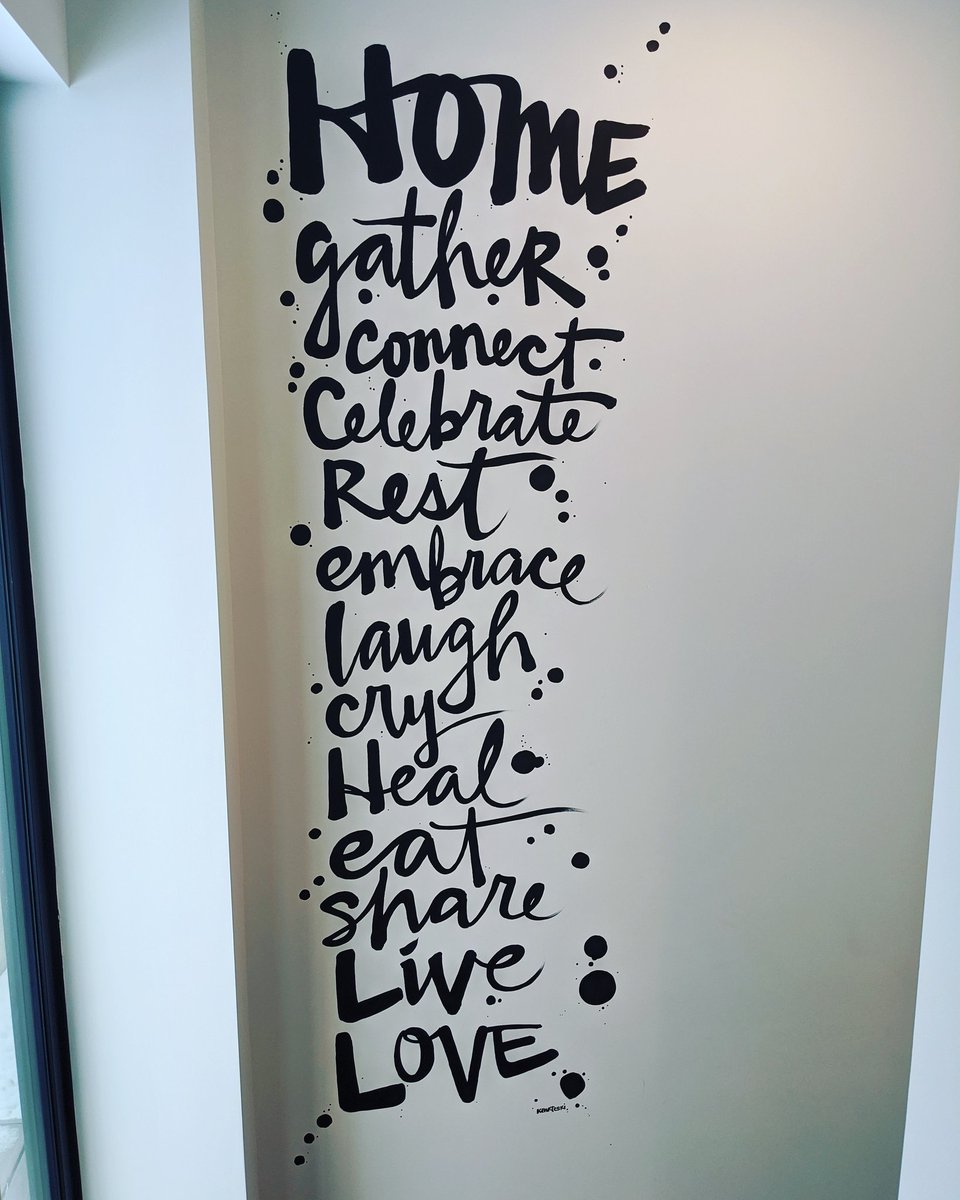 HOME
gatheR
connect
Celebrate
Rest
embrace
laugh
cry
Heal
eat
share
Live
LOVE